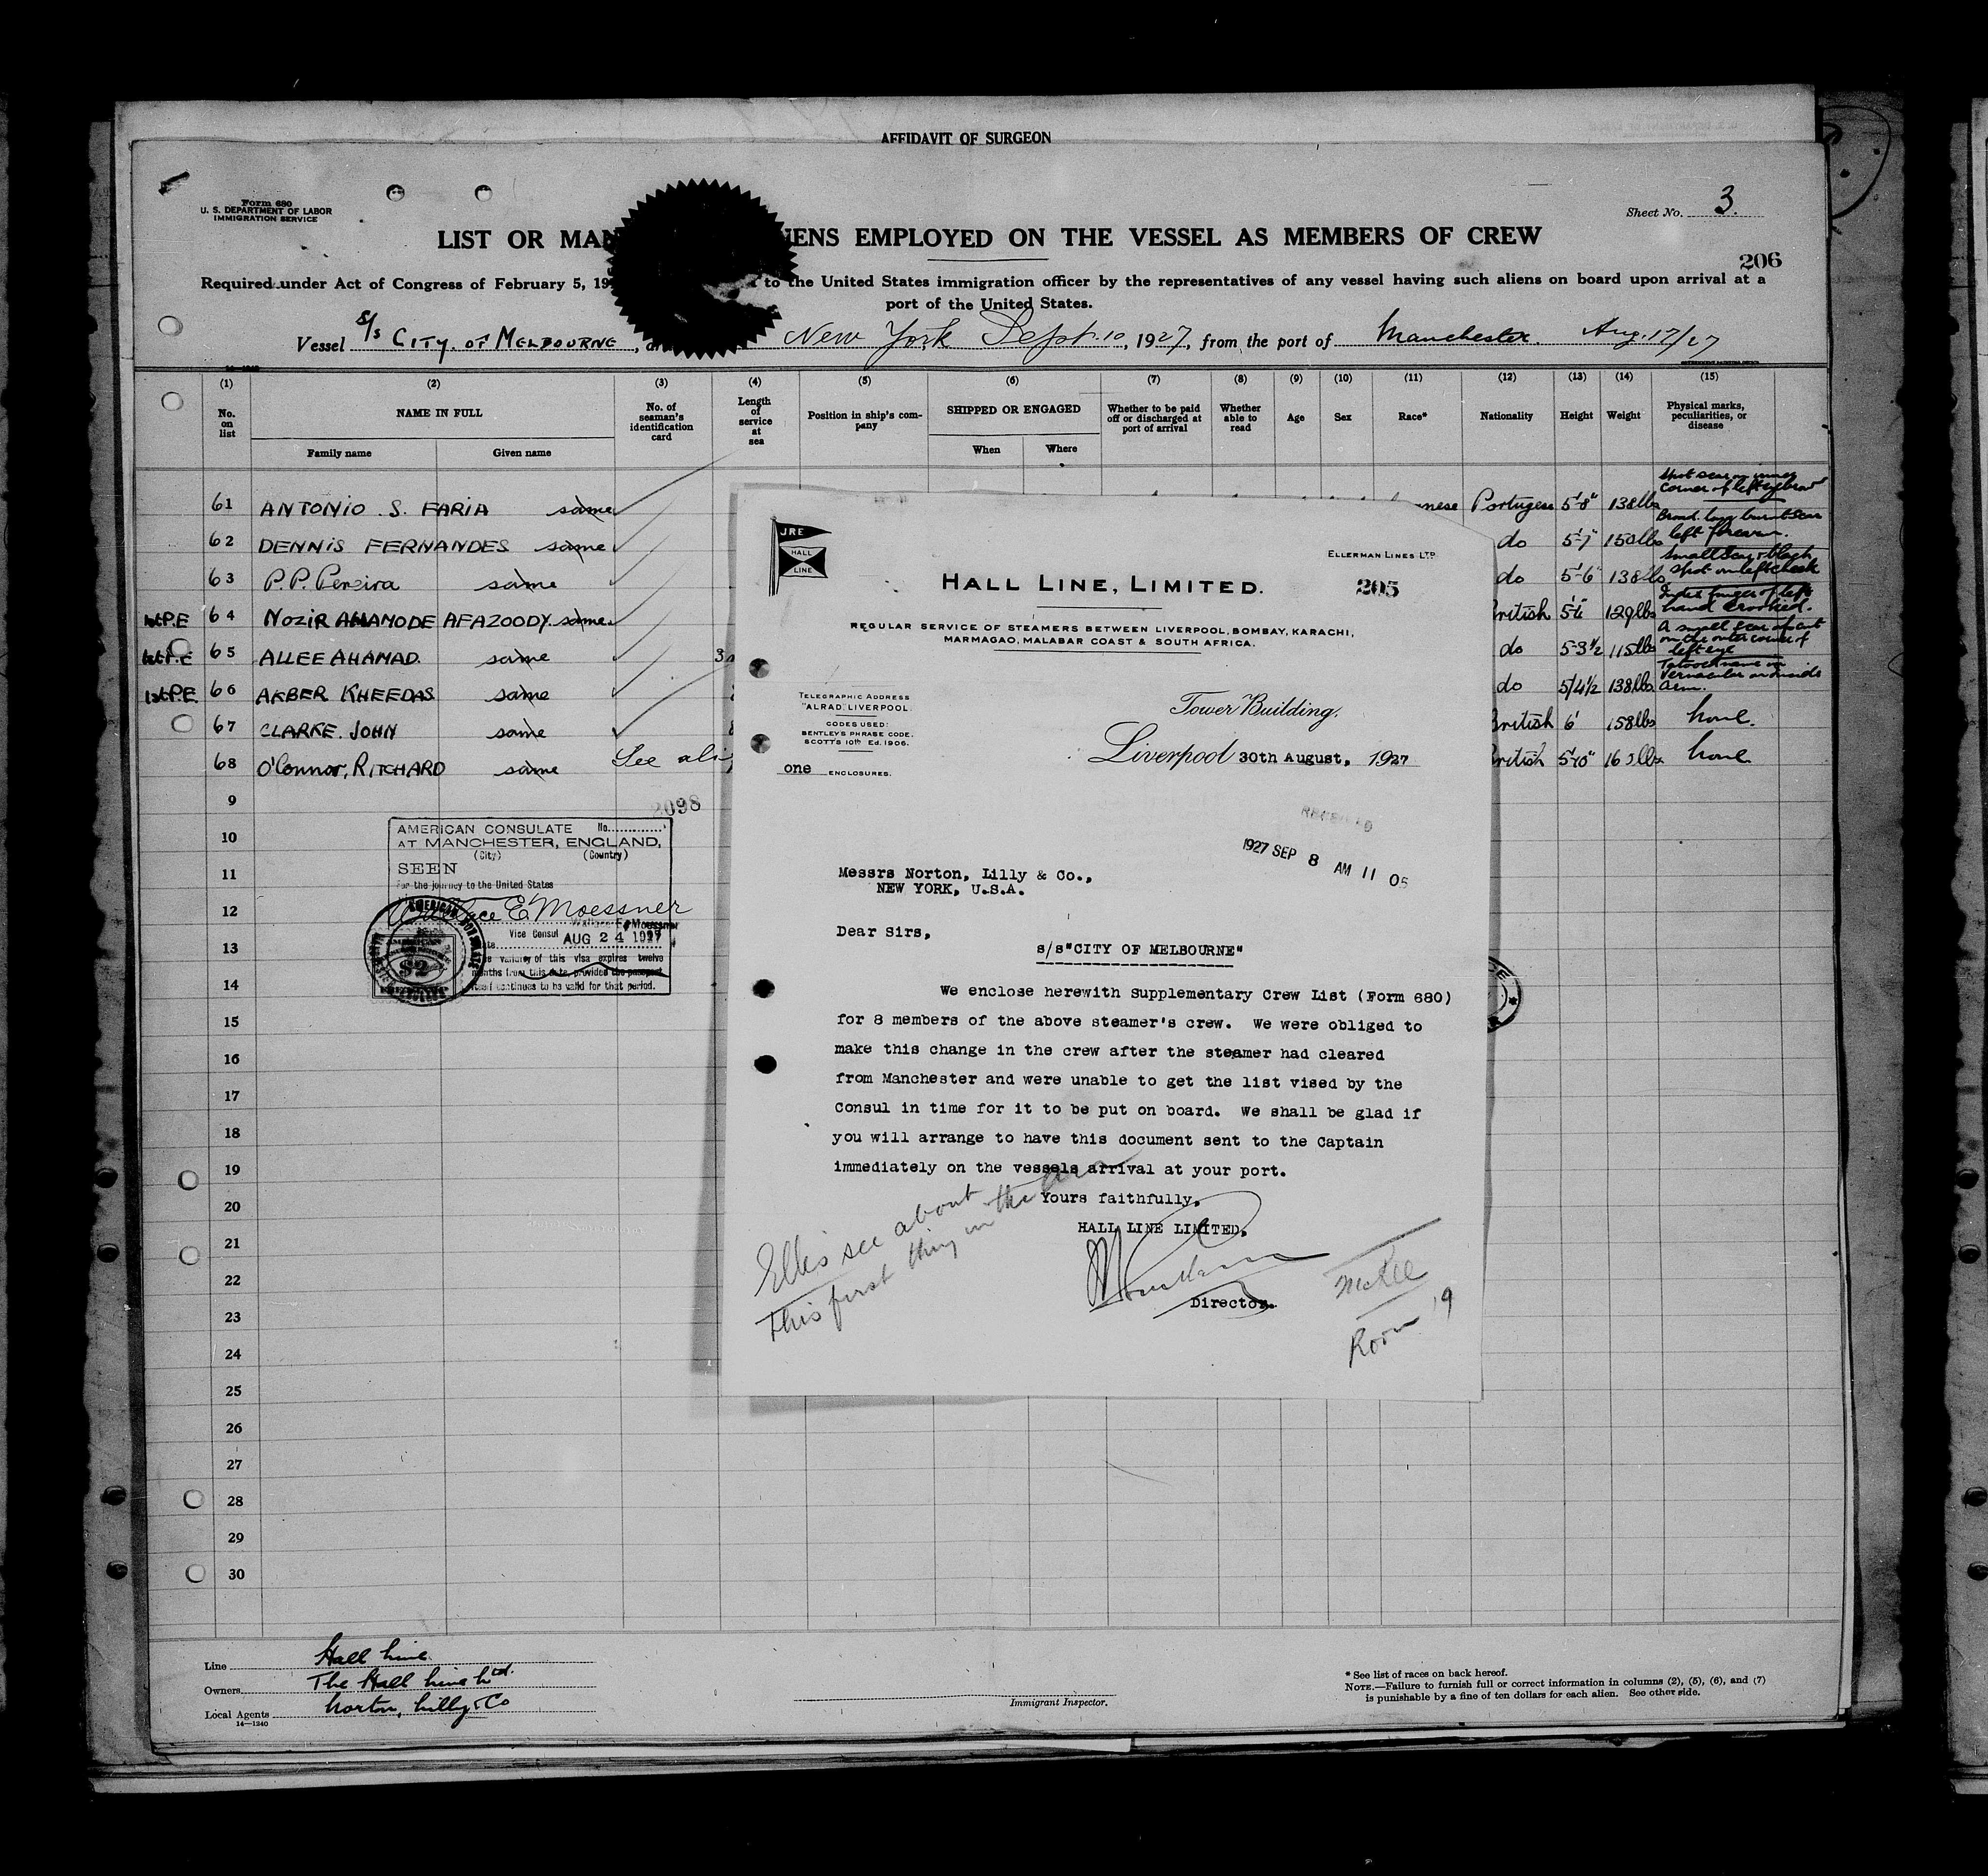 AFFIDAVIT OF SURGEON
Form 680
U. S. DEPARTMENT OF LABOR
IMMIGRATION SERVICE
Sheet No. 3.
LIST OR MAN IENS EMPLOYED ON THE VESSEL AS MEMBERS OF CREW
206
Required under Act of Congress of February 5, 19 to the United States immigration officer by the representatives of any vessel having such aliens on board upon arrival at a
port of the United States.
Vessel S/s CITY OF MELBOURNE, New York Sept. 10, 1927, from the port of Manchester. Aug. 17/27
(1) (2) (3) (4) (5) (6) (7) (8) (9) (10) (11) (12) (13) (14) (15)
No. on list
NAME IN FULL
Family name Given name
No. of seaman's identification card
Length of service at sea
Position in ship's company
SHIPPED OR ENGAGED
When Where
Whether to be paid off or discharged at port of arrival
Whether able to read
Age
Sex
Race*
Nationality
Height
Weight
Physical marks, peculiarities, or disease
61 ANTONIO . S. FARIA same nese Portugese 5'-8" 138lbs Spot scar on inner corner of left eyebrow
62 DENNIS FERNANDES same do 5'-7" 150lbs left forearm.
63 P.P. Pereira same do 5'-6" 138lbs Small Scar & black spot on left cheek
1st P.E 64 NOZIR AHAMODE AFAZOODY. same British 129lbs Index finger of left hand crooked.
1st P.E 65 ALLEE AHAMAD. same 3 do 5-3½ 115lbs A small scar of cut on the outer corner of left eye
1st P.E. 66 AKBER KHEEDAS same do 5/4½ 138lbs Tatooed name in Vernacular on inside arm.
67 CLARKE. JOHN same British 6' 158lbs none.
68 O'Connor, RITCHARD same See British 5'10" none.
9
10
11
12
13
14
15
16
17
18
19
20
21
22
23
24
25
26
27
28
29
30
2098
AMERICAN CONSULATE No.
AT MANCHESTER, ENGLAND,
(City) (Country)
SEEN
For the journey to the United States
Wallace E Moessner
Wallace E. Moessner
Vice Consul
AUG 24 1927
validity of this visa expires twelve
months from this date, provided the passport
itself continues to be valid for that period.
$2
JRE
HALL
LINE
ELLERMAN LINES LTD
HALL LINE, LIMITED.
205
REGULAR SERVICE OF STEAMERS BETWEEN LIVERPOOL, BOMBAY, KARACHI,
MARMAGAO, MALABAR COAST & SOUTH AFRICA.
TELEGRAPHIC ADDRESS
"ALRAD" LIVERPOOL.
CODES USED:
BENTLEY'S PHRASE CODE.
SCOTT'S 10th Ed. 1906.
one ENCLOSURES.
Tower Building,
Liverpool 30th August, 1927
RECEIVED
1927 SEP 8 AM 11 05
Messrs Norton, Lilly & Co.,
NEW YORK, U.S.A.
Dear Sirs,
s/s"CITY OF MELBOURNE"
We enclose herewith Supplementary Crew List (Form 680)
for 8 members of the above steamer's crew. We were obliged to
make this change in the crew after the steamer had cleared
from Manchester and were unable to get the list vised by the
Consul in time for it to be put on board. We shall be glad if
you will arrange to have this document sent to the Captain
immediately on the vessels arrival at your port.
Yours faithfully,
HALL LINE LIMITED,
Director.
Ellis see about
This first thing in the
McKee
Room 19
Line Hall Line
Owners The Hall Line Ltd.
Local Agents Norton, Lilly & Co
14—1240
Immigrant Inspector.
* See list of races on back hereof.
NOTE.—Failure to furnish full or correct information in columns (2), (5), (6), and (7)
is punishable by a fine of ten dollars for each alien. See other side.